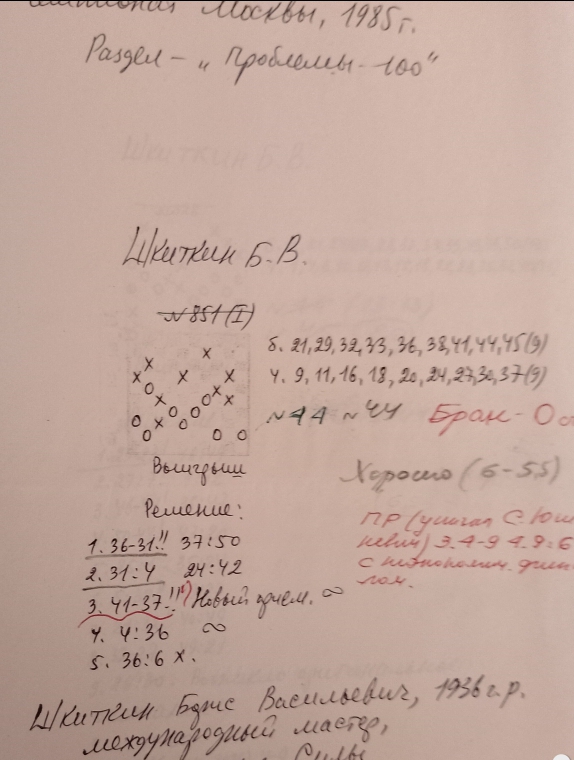 Москвы, 1985г.
Раздел - „Проблемы-100"
Шкиткин Б.В.
№851(I)
б. 21,29,32,33,36,38,41,44,45(9)
ч. 9,11,16,18,20,24,27,30,37(9)
№44 №44 Брак-0
Хорошо (6-5,5)
Выигрыш
Решение:
1. 36-31!! 37:50
2. 31:4 24:42
3. 41-37!! Новый прием. ∞
4. 4:36 ∞
5. 36:6 х.
ПР (указал С. Юш
кевич) 3. 4-9 4. 9:6
с
лом.
Шкиткин Борис Васильевич, 1936 г.р.
международный мастер,